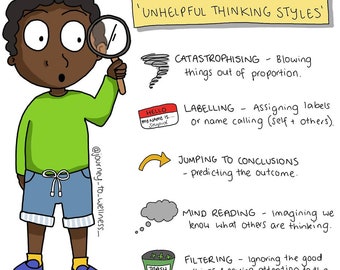 'UNHELPFUL THINKING STYLES'
CATASTROPHISING - Blowing
things out of proportion.
HELLO
MY NAME IS...
LABELLING - Assigning labels
or name calling (self + others).
JUMPING TO CONCLUSIONS
- predicting the outcome.
MIND READING - imagining we
know what others are thinking.
FILTERING - Ignoring the good
TRASH
@journey_to_wellness_